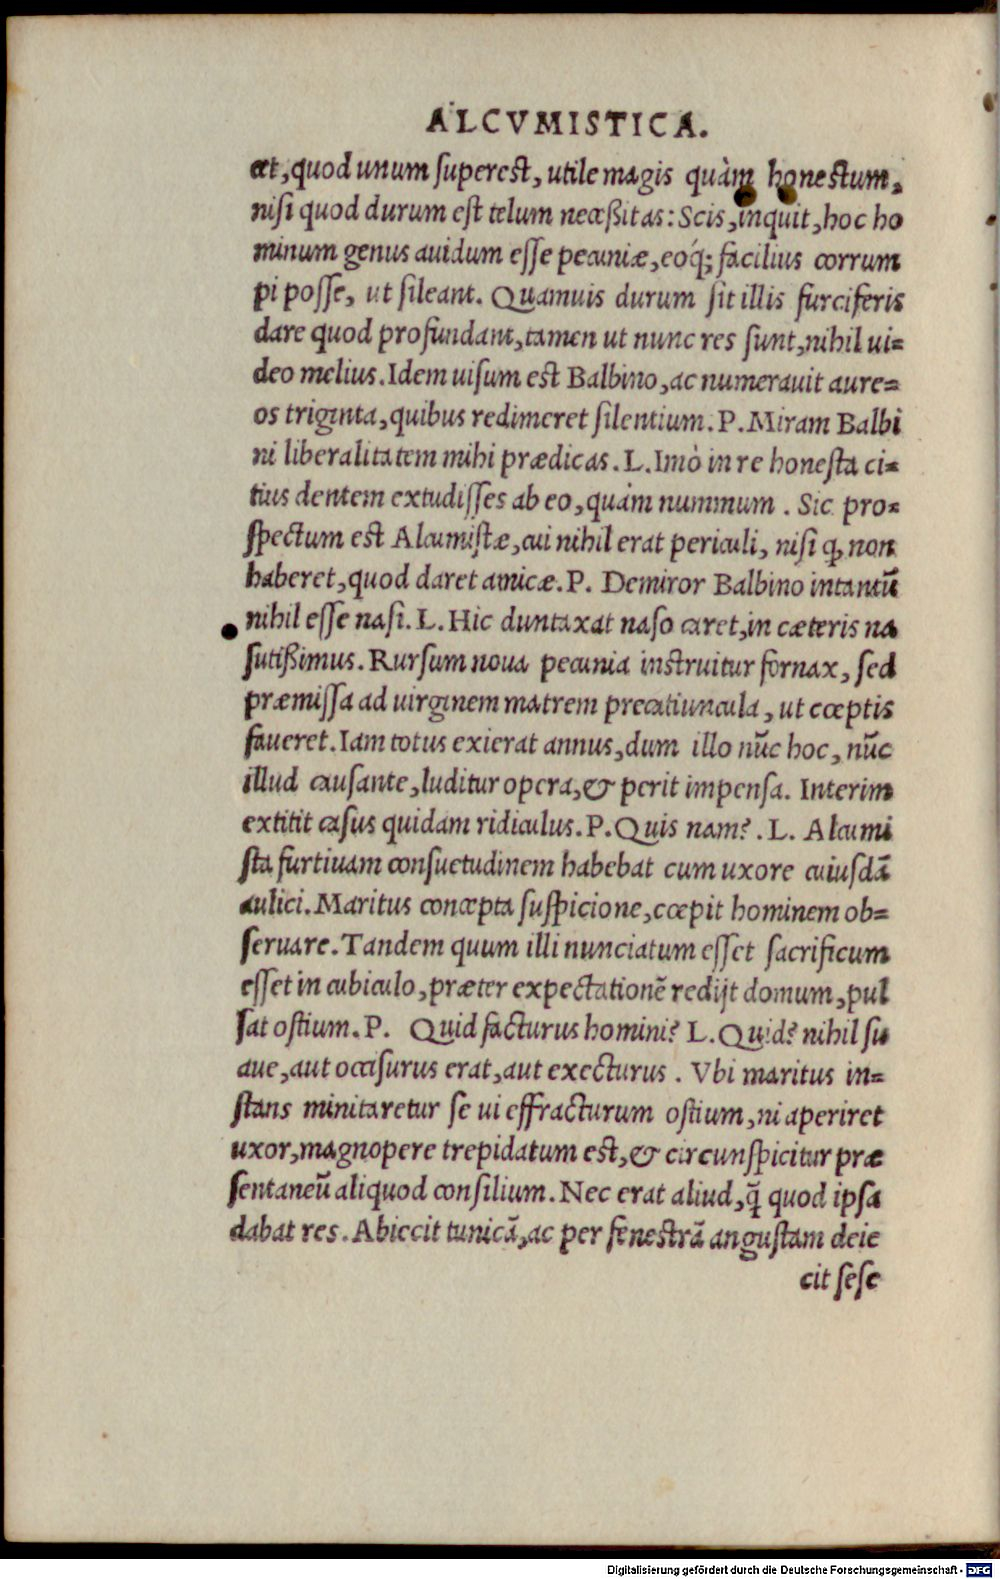 ALCVMISTICA.
cet, quod unum superest, utile magis quàm honestum,
nisi quod durum est telum necessitas: Scis, inquit, hoc ho
minum genus auidum esse pecuniæ, eóq́; facilius corrum
pi posse, ut sileant. Quamuis durum sit illis furciferis
dare quod profundant, tamen ut nunc res sunt, nihil ui=
deo melius. Idem uisum est Balbino, ac numerauit aure=
os triginta, quibus redimeret silentium. P. Miram Balbi
ni liberalitatem mihi prædicas. L. Imò in re honesta ci=
tius dentem extudisses ab eo, quàm nummum. Sic pro=
spectum est Alcumistæ, cui nihil erat periculi, nisi ꝙ non
haberet, quod daret amicæ. P. Demiror Balbino intantũ
nihil esse nasi. L. Hic duntaxat naso caret, in cæteris na
sutissimus. Rursum noua pecunia instruitur fornax, sed
præmissa ad uirginem matrem precatiuncula, ut cœptis
faueret. Iam totus exierat annus, dum illo nũc hoc, nũc
illud causante, luditur opera, & perit impensa. Interim
extitit casus quidam ridiculus. P. Quis nam?. L. Alcumi
sta furtiuam consuetudinem habebat cum uxore cuiusdã
aulici. Maritus concepta suspicione, cœpit hominem ob=
seruare. Tandem quum illi nunciatum esset sacrificum
esset in cubiculo, præter expectationẽ redijt domum, pul
sat ostium. P. Quid facturus homini? L. Quid? nihil su
aue, aut occisurus erat, aut execturus. Vbi maritus in=
stans minitaretur se ui effracturum ostium, ni aperiret
uxor, magnopere trepidatum est, & circunspicitur præ
sentaneũ aliquod consilium. Nec erat aliud, q̃ quod ipsa
dabat res. Abiecit tunicã, ac per fenestrã angustam deie
cit sese
Digitalisierung gefördert durch die Deutsche Forschungsgemeinschaft - DFG